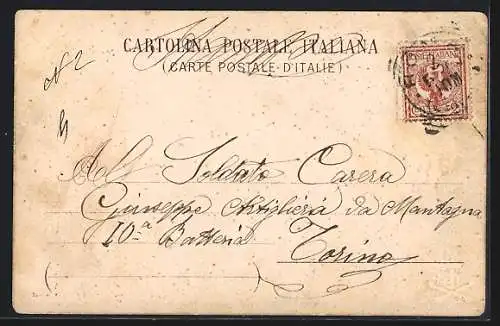 CARTOLINA POSTALE ITALIANA
(CARTE POSTALE D'ITALIE)
N 2
Al Soldato Carera
Giuseppe Artiglieria da Montagna
10ª Batteria
Torino